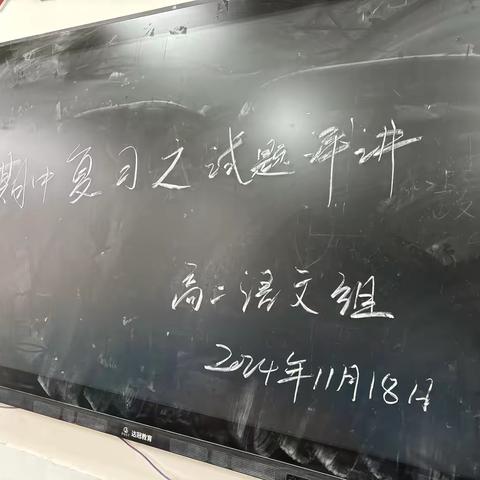 期中复习之试题评讲
高二语文组
2024年11月18日
达冠教育